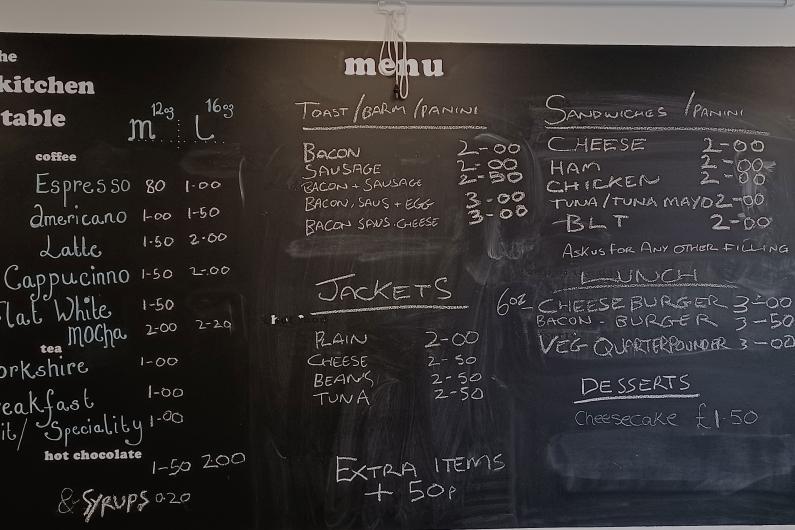 the
kitchen
table
12oz 16oz
m L
coffee
Espresso 80 1-00
americano 1-00 1-50
Latte 1-50 2-00
Cappucinno 1-50 2-00
Flat White 1-50
Mocha 2-00 2-20
tea
orkshire 1-00
reakfast 1-00
it/ Speciality 1-00
hot chocolate
1-50 200
& SYRUPS 0.20
menu
TOAST/BARM/PANINI
BACON 2-00
SAUSAGE 2-00
BACON + SAUSAGE 2-50
BACON, SAUS + EGG 3-00
BACON SAUS. CHEESE 3-00
JACKETS
PLAIN 2-00
CHEESE 2-50
BEANS 2-50
TUNA 2-50
EXTRA ITEMS
+ 50p
SANDWICHES /PANINI
CHEESE 2-00
HAM 2-00
CHICKEN 2-00
TUNA/TUNA MAYO 2-00
BLT 2-00
ASK US FOR ANY OTHER FILLING
LUNCH
6oz- CHEESE BURGER 3-00
BACON - BURGER 3-50
VEG QUARTERPOUNDER 3-00
DESSERTS
Cheesecake £1.50